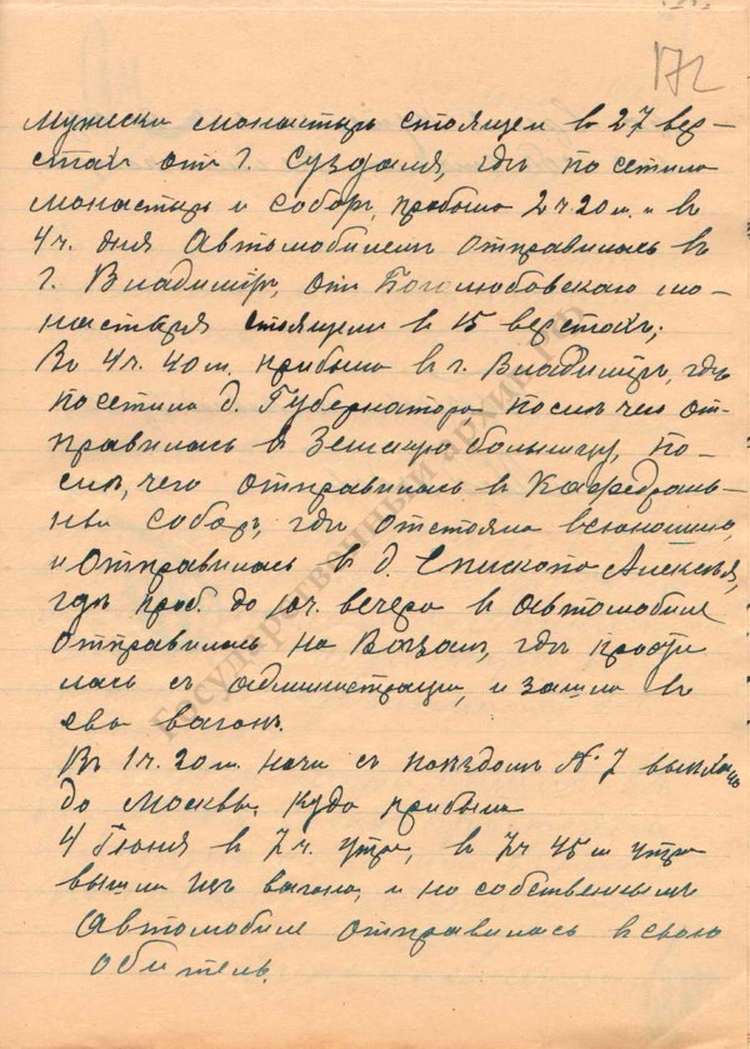 172
мужески монастырь стоящем въ 27 вер-
стах отъ г. Суздаля, гдѣ посетила
монастырь и соборъ, пробыла 2 ч. 20 м. и въ
4 ч. дня Автомобилем отправилась въ
г. Владимиръ, отъ Боголюбовскаго мо-
настыря стоящем въ 15 верстахъ;
Въ 4 ч. 40 м. прибыла въ г. Владимиръ, гдѣ
посетила д. Губернатора после чего от-
правилась в Земскую больницу, по-
сле, чего отправилась в Кафедраль-
ны соборъ, гдѣ отстояла всюношню,
и отправилась въ д. Епископа Алексѣя,
гдѣ проб. до 10 ч. вечера в автомобиле
отправилась на Вокзалъ, гдѣ прости
лась съ администраци, и зашла въ
сво вагонъ.
Въ 1 ч. 20 м. ночи съ поѣздомъ № 7
до Москвы, куда прибыла
4 Июня в 7 ч. утра, въ 7 ч 45 м утра
вышла изъ вагона, и на собственнымъ
Автомобиле отправилась въ свою
обитель.
Государственный архив РФ